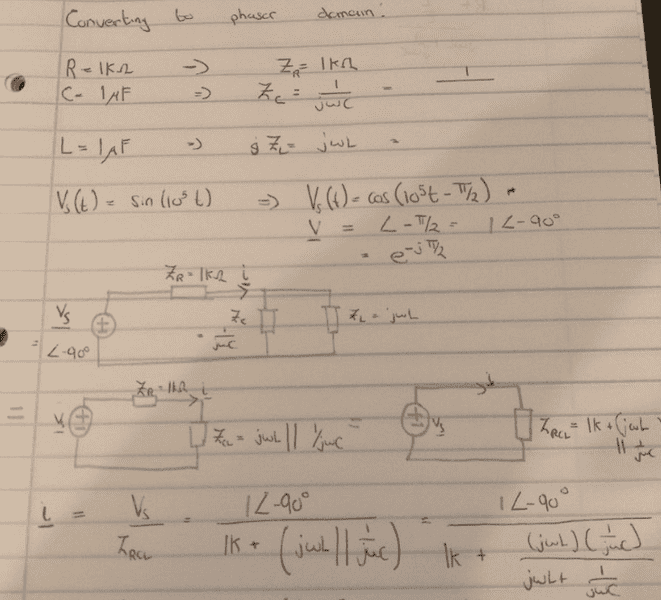 Converting to phasor domain:
R = 1KΩ → Z_R = 1KΩ
C - 1μF => Z_C = 1/jωC - 1/
L = 1μF => Z_L = jωL =
V_s(t) = sin(10⁵t) => V_s(t) = cos(10⁵t - π/2)
V = ∠-π/2 = 1∠-90°
= e^-jπ/2
Z_R = 1KΩ i
V_s ∠-90° Z_C = 1/jωC Z_L = jωL
= V_s Z_R = 1KΩ i Z_CL = jωL || 1/jωC
= V_s i Z_RCL = 1K + (jωL || 1/jωC
i = V_s/Z_RCL = 1∠-90°/(1K + (jωL || 1/jωC)) = 1∠-90°/(1K + (jωL)(1/jωC)/(jωL + 1/jωC))